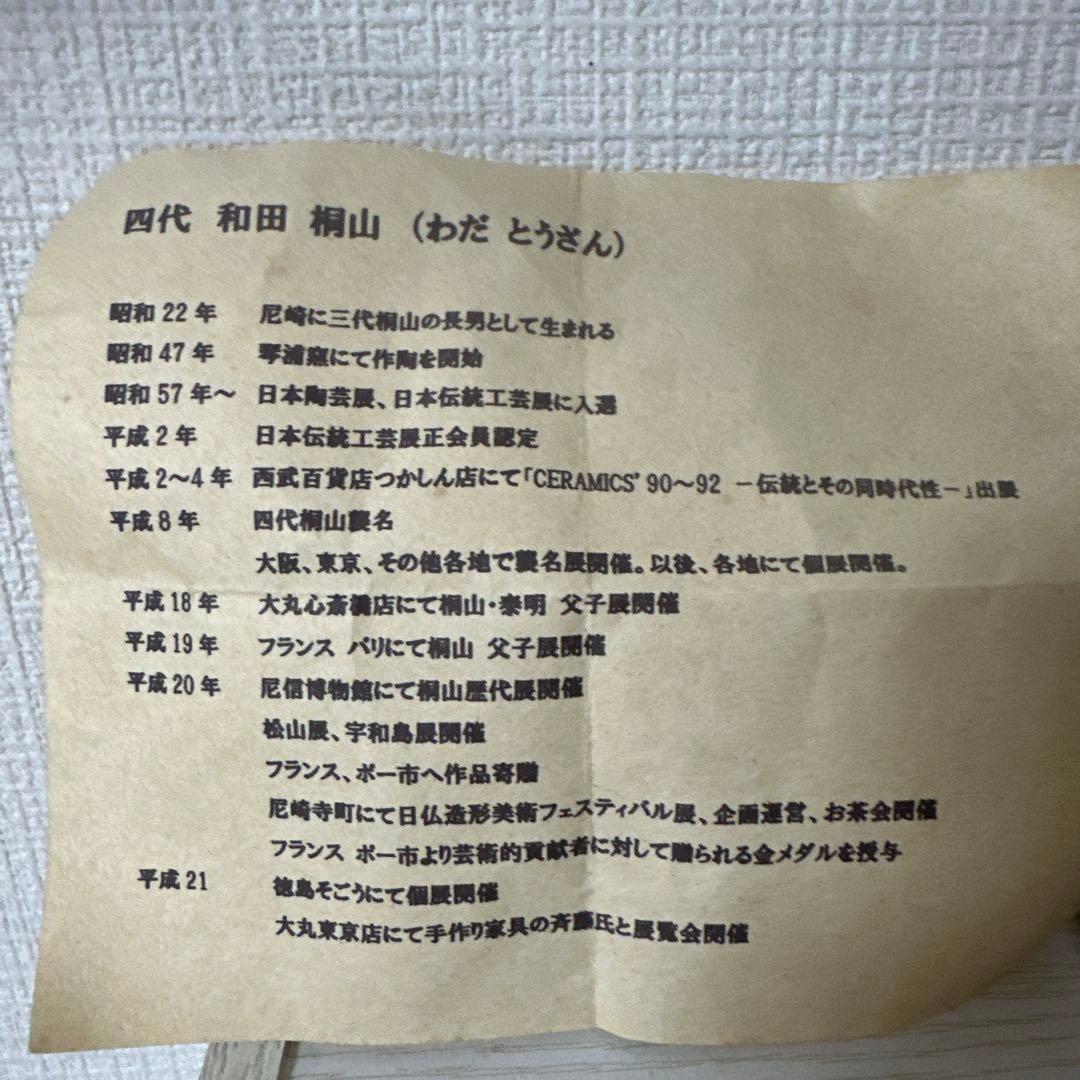 四代 和田 桐山 (わだ とうざん)
昭和22年 尼崎に三代桐山の長男として生まれる
昭和47年 琴浦窯にて作陶を開始
昭和57年～ 日本陶芸展、日本伝統工芸展に入選
平成2年 日本伝統工芸展正会員認定
平成2～4年 西武百貨店つかしん店にて「CERAMICS'90～92 －伝統とその同時代性－」出展
平成8年 四代桐山襲名
大阪、東京、その他各地で襲名展開催。以後、各地にて個展開催。
平成18年 大丸心斎橋店にて桐山・泰明 父子展開催
平成19年 フランス パリにて桐山 父子展開催
平成20年 尼信博物館にて桐山歴代展開催
松山展、宇和島展開催
フランス、ポー市へ作品寄贈
尼崎寺町にて日仏造形美術フェスティバル展、企画運営、お茶会開催
フランス ポー市より芸術的貢献者に対して贈られる金メダルを授与
平成21 徳島そごうにて個展開催
大丸東京店にて手作り家具の斉藤氏と展覧会開催